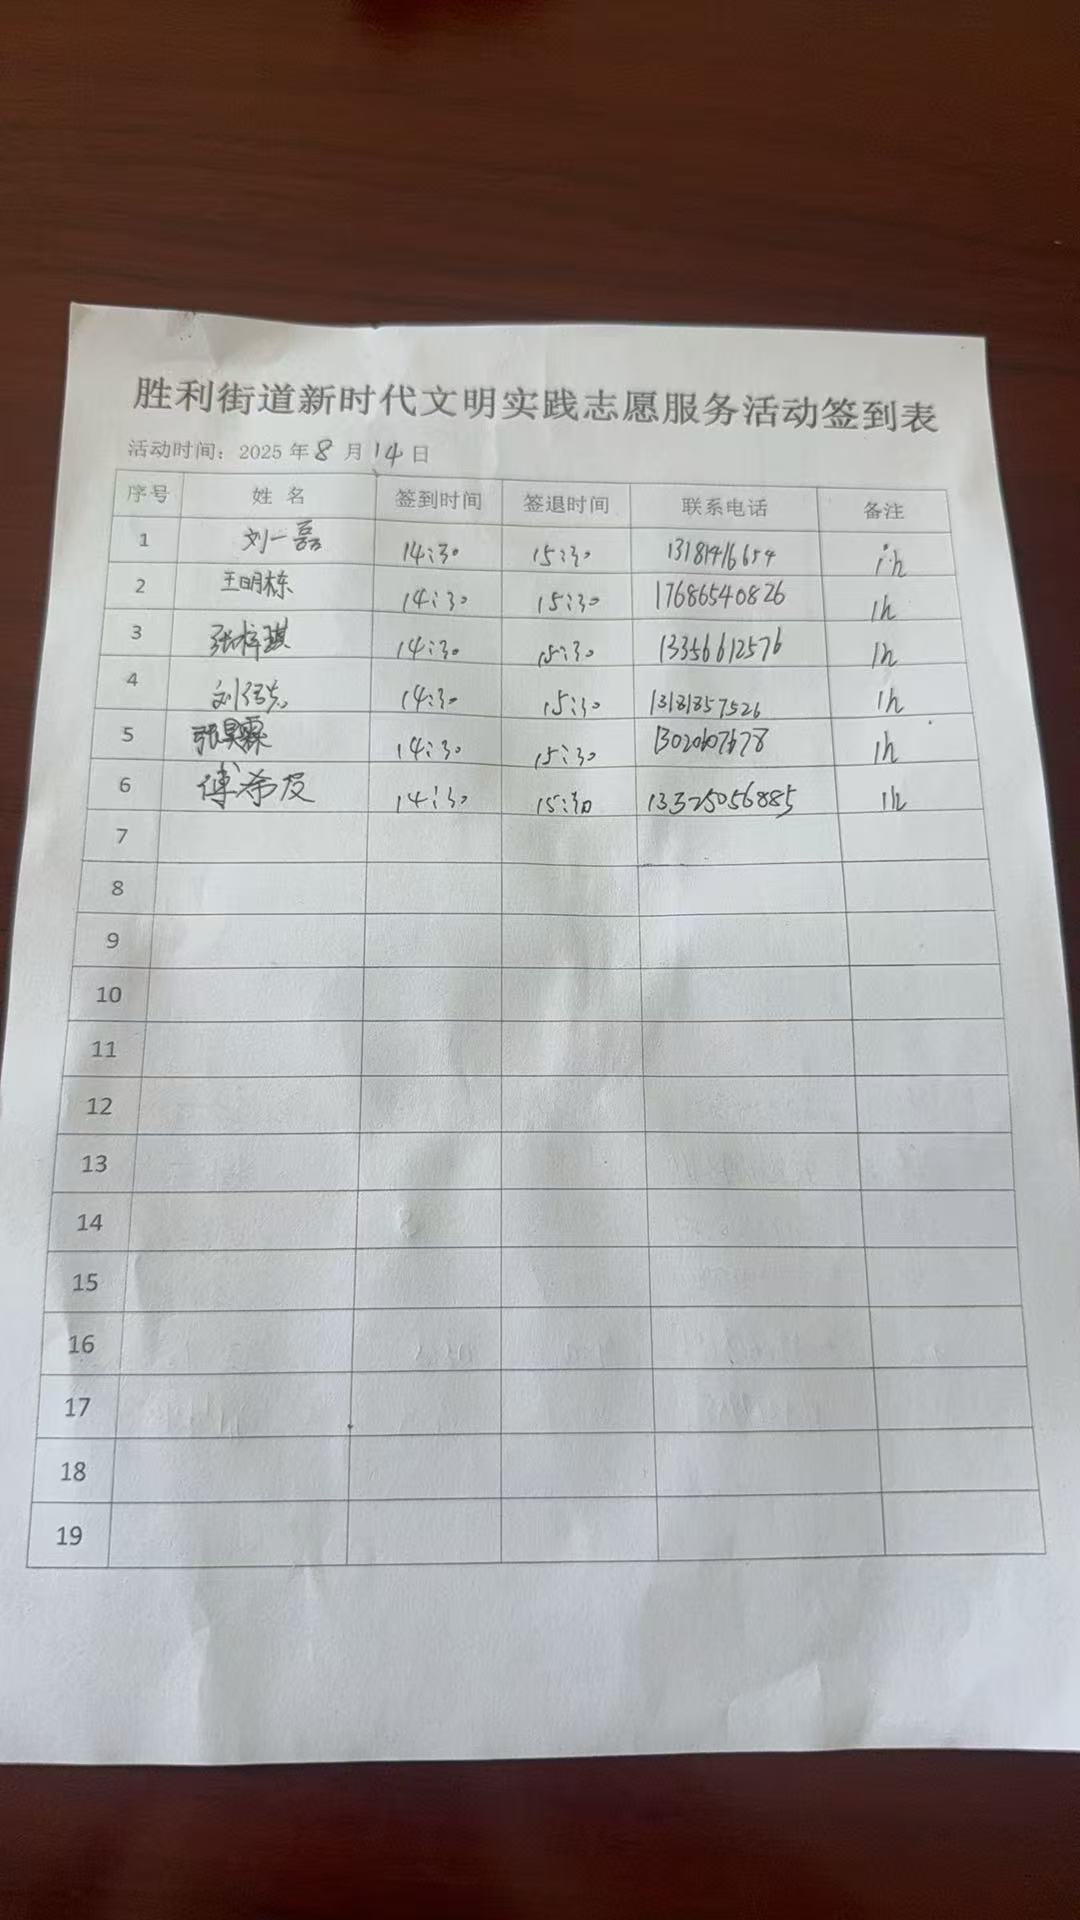 胜利街道新时代文明实践志愿服务活动签到表
活动时间：2025 年 8 月 14 日
序号 姓 名 签到时间 签退时间 联系电话 备注
1 刘一磊 14:30 15:30 13181416654 1h
2 王明栋 14:30 15:30 17686540826 1h
3 张梓琪 14:30 15:30 13356612576 1h
4 14:30 15:30 13181857526 1h
5 张昊霖 14:30 15:30 1h
6 傅希 14:30 15:30 13325056885 1h
7
8
9
10
11
12
13
14
15
16
17
18
19